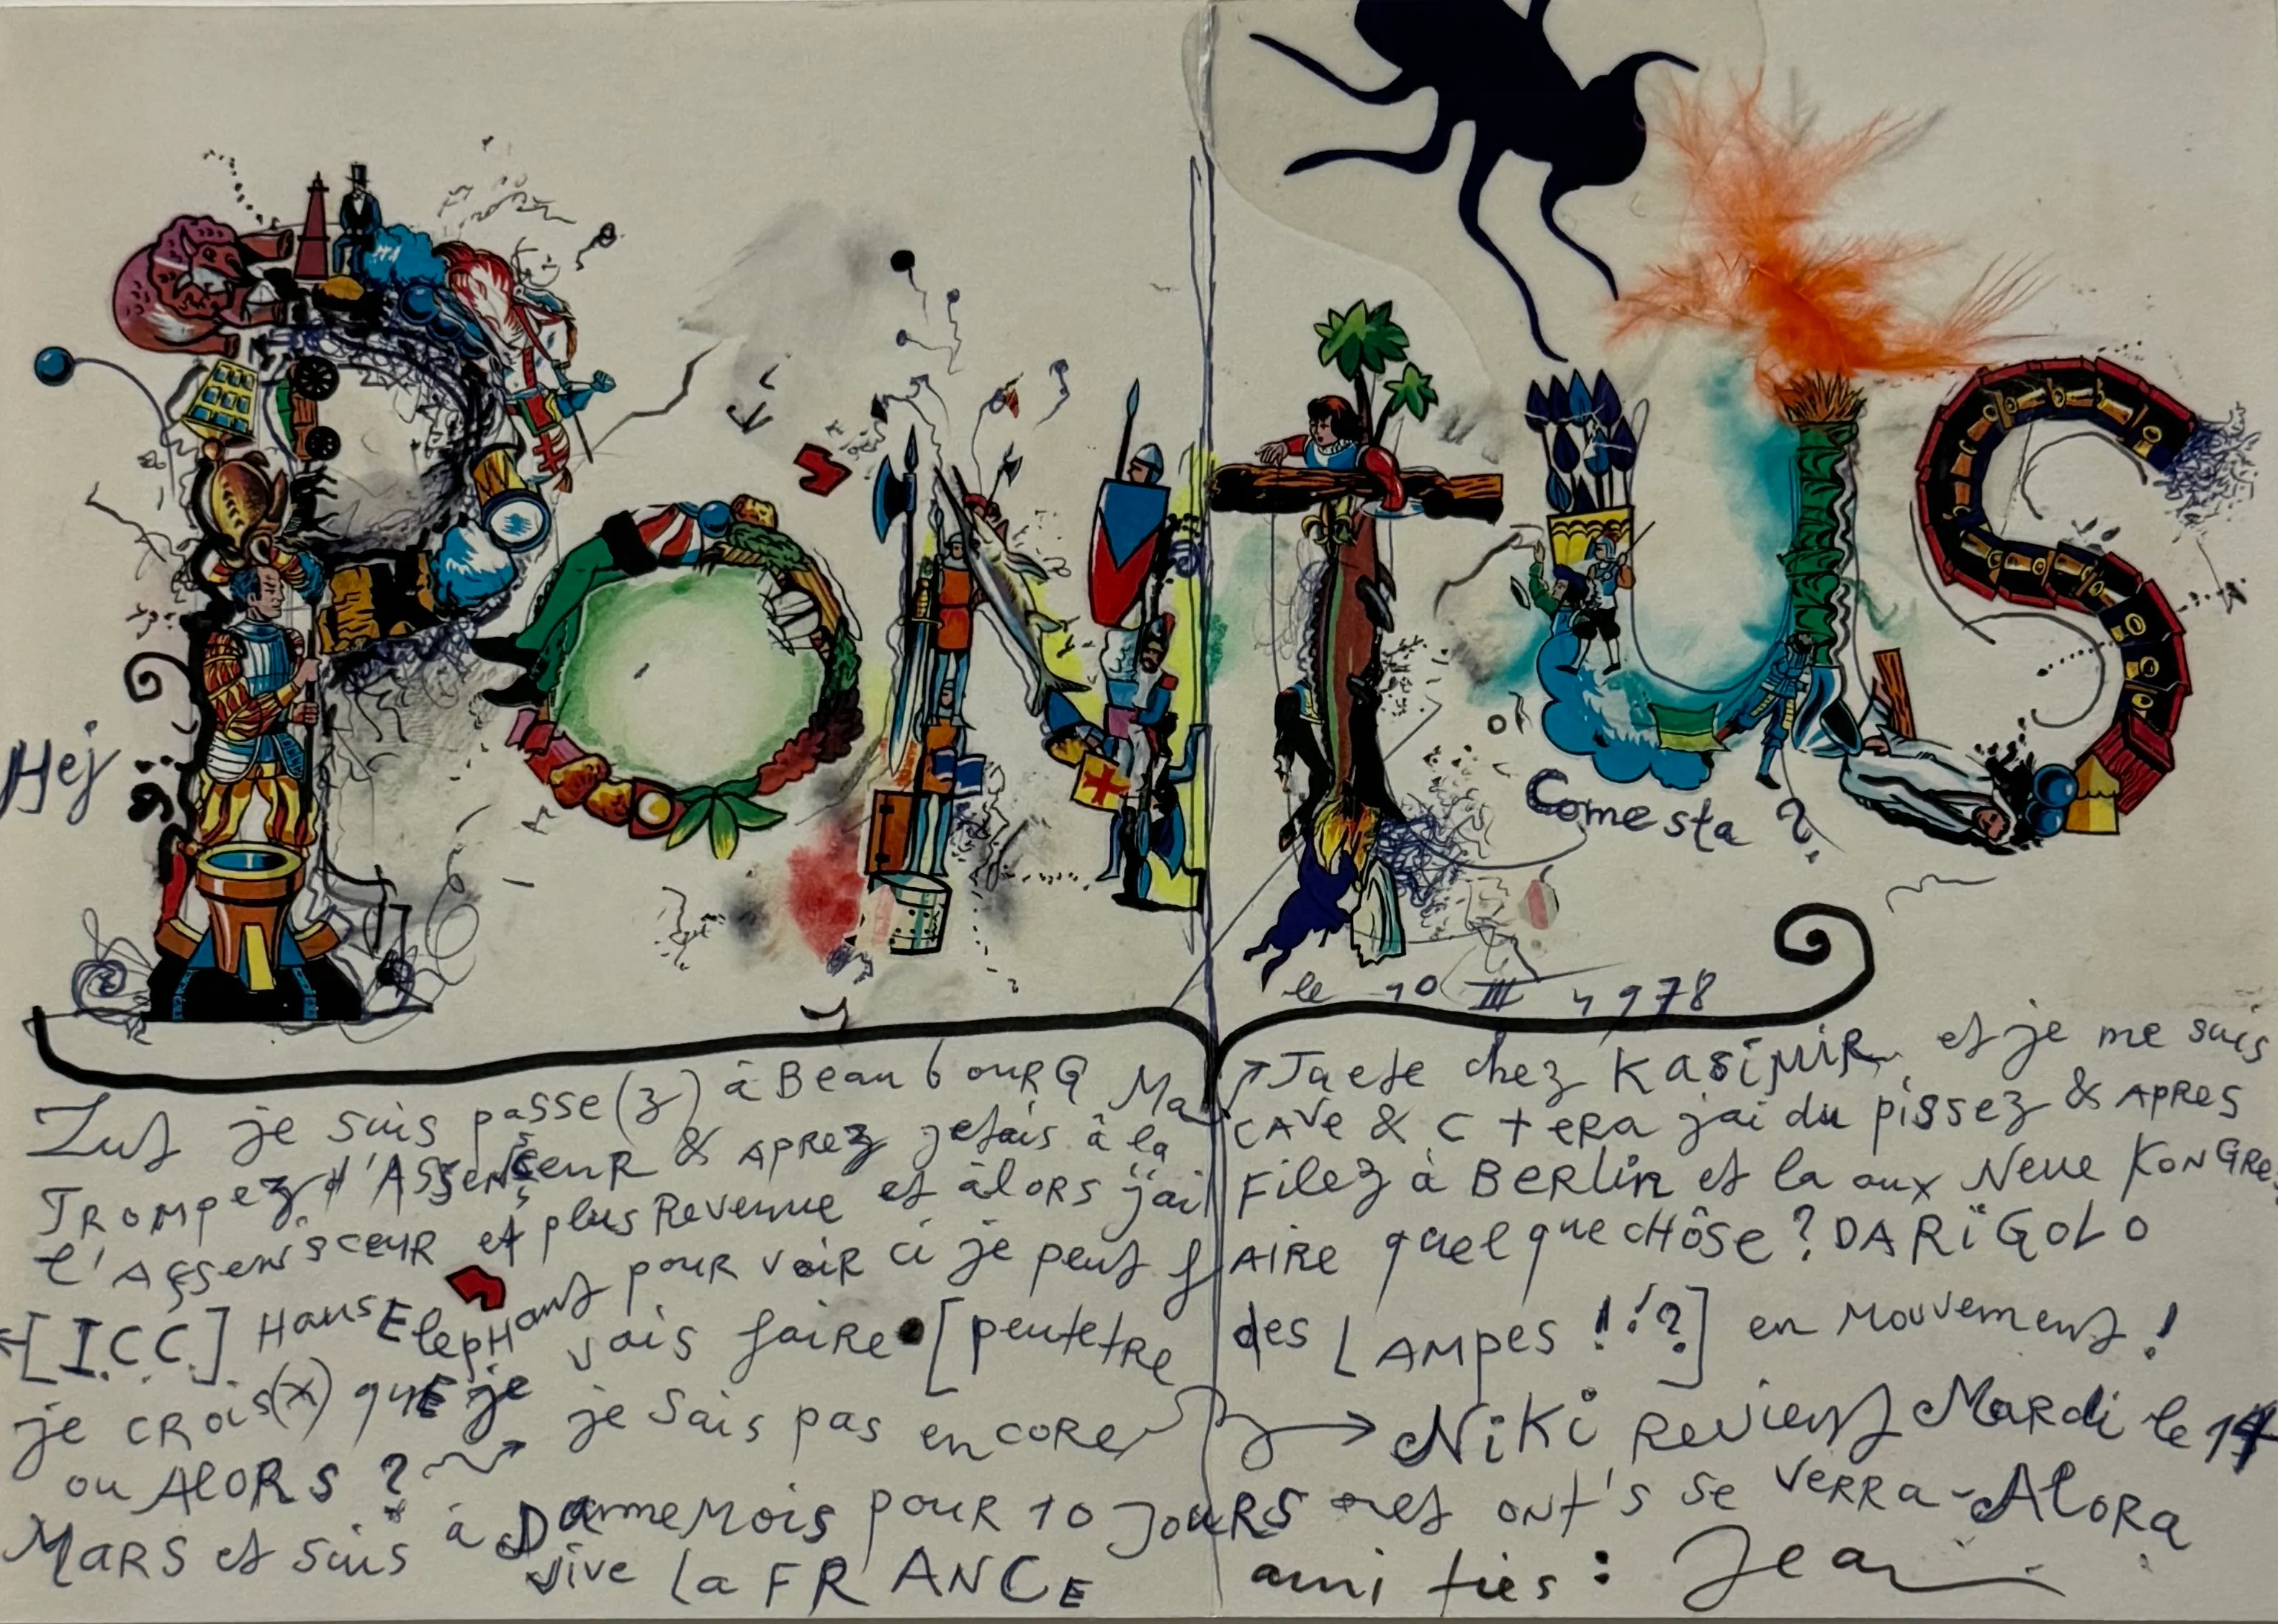 PONTUS
Hej
Come sta ?
le 10 III 1978
Zut je suis passe(z) à BeaubouRG Ma Jaete chez KASiMiR et je me suis
TROMpez d'AssensceuR & APRez jetais à la CAVe & C tERA jai du pissez & APRES
l'AssensceuR et plus Revenue et àlORS j'ai Filez à BeRLin et la aux Neue KonGRe
[I.C.C.] Haus ElepHant pour voiR ci je peut fAIRE quelque cHôse? DARiGOLO
je CROis(x) quE je vais faiRe [peutetRe des LAMpes !!!?] en Mouvement !
ou AlORS ? je Sais pas encORe → NiKi Revient MaRdi le 14
MaRS et suis à DannemOis pouR 10 JOuRS et ont's se VeRRa - AlORa
vive la FRANCE amities : Jean